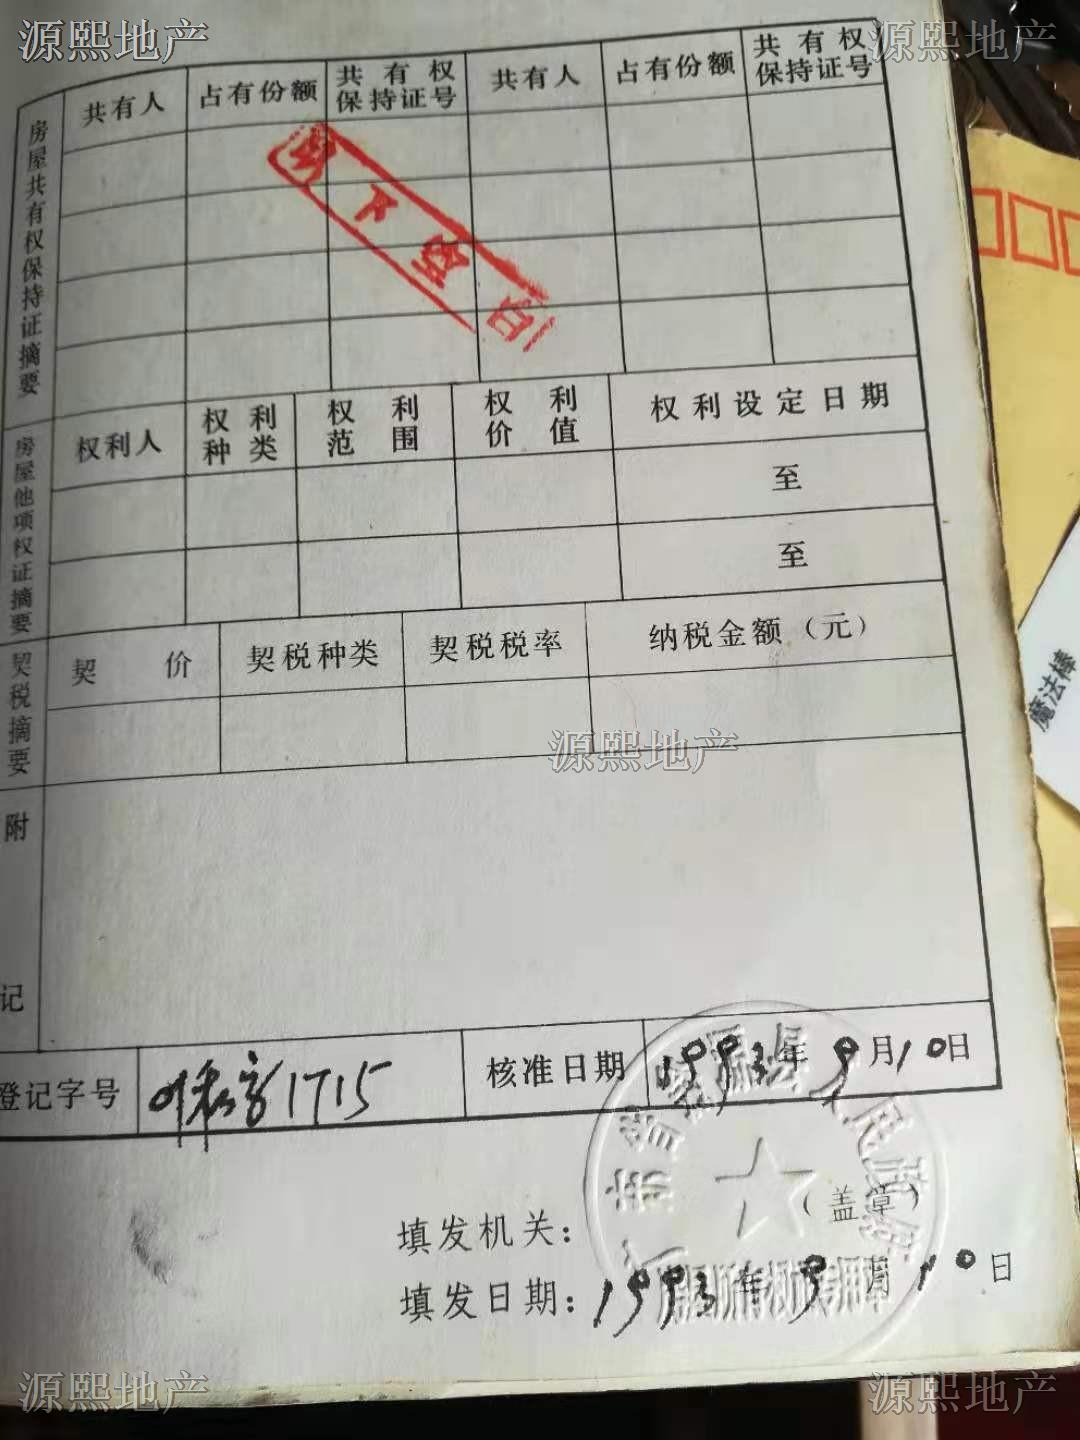 源熙地产 源熙地产
房屋共有权保持证摘要
共有人 占有份额 共有权保持证号 共有人 占有份额 共有权保持证号
以下空白
房屋他项权证摘要
权利人 权利种类 权利范围 权利价值 权利设定日期
至
至
契税摘要
契价 契税种类 契税税率 纳税金额（元）
源熙地产
附记
登记字号 1715 核准日期 1993年9月10日
县人民政府
填发机关： （盖章）
填发日期：1993年9月10日
房屋所有权专用章
魔法棒
源熙地产 源熙地产